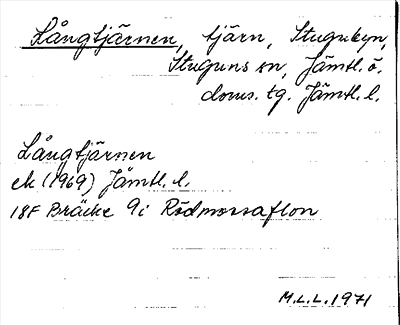 Långtjärnen, tjärn, Stugubyn,
Stuguns sn, Jämtl. ö.
doms. tg. Jämtl. l.
Långtjärnen
ek (1969) Jämtl. l.
18F Bräcke 9i Rödmossaflon
M.L.L. 1971